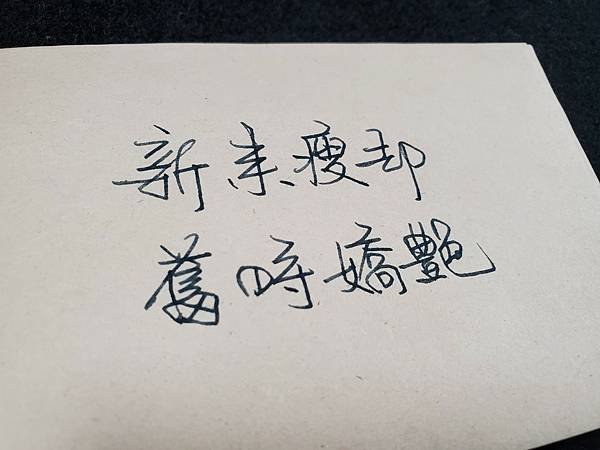 新來瘦却
舊時嬌艷